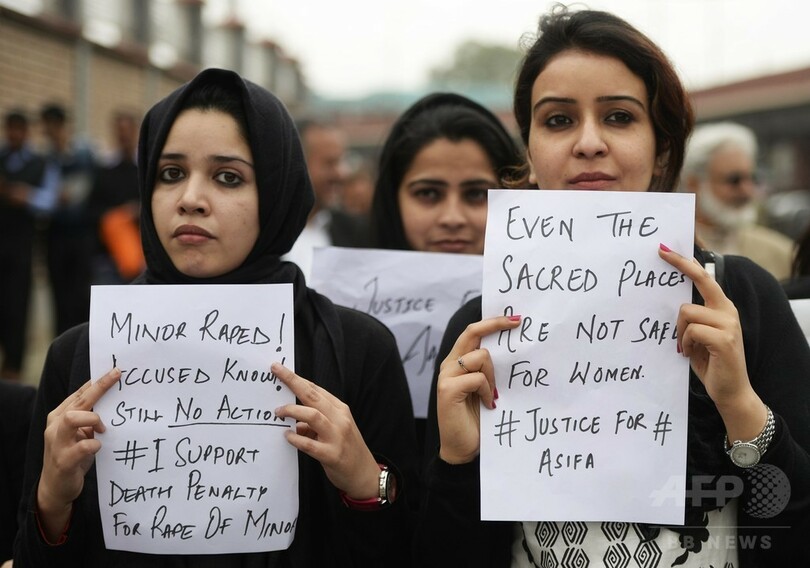 MINOR RAPED!
ACCUSED KNOWN!
STILL NO ACTION
#I SUPPORT
DEATH PENALTY
FOR RAPE OF MINOR
JUSTICE
EVEN THE
SACRED PLACES
ARE NOT SAFE
FOR WOMEN.
#JUSTICE FOR#
ASIFA
AFP
BB NEWS